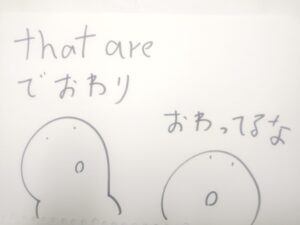 that are
でおわり
おわってるな